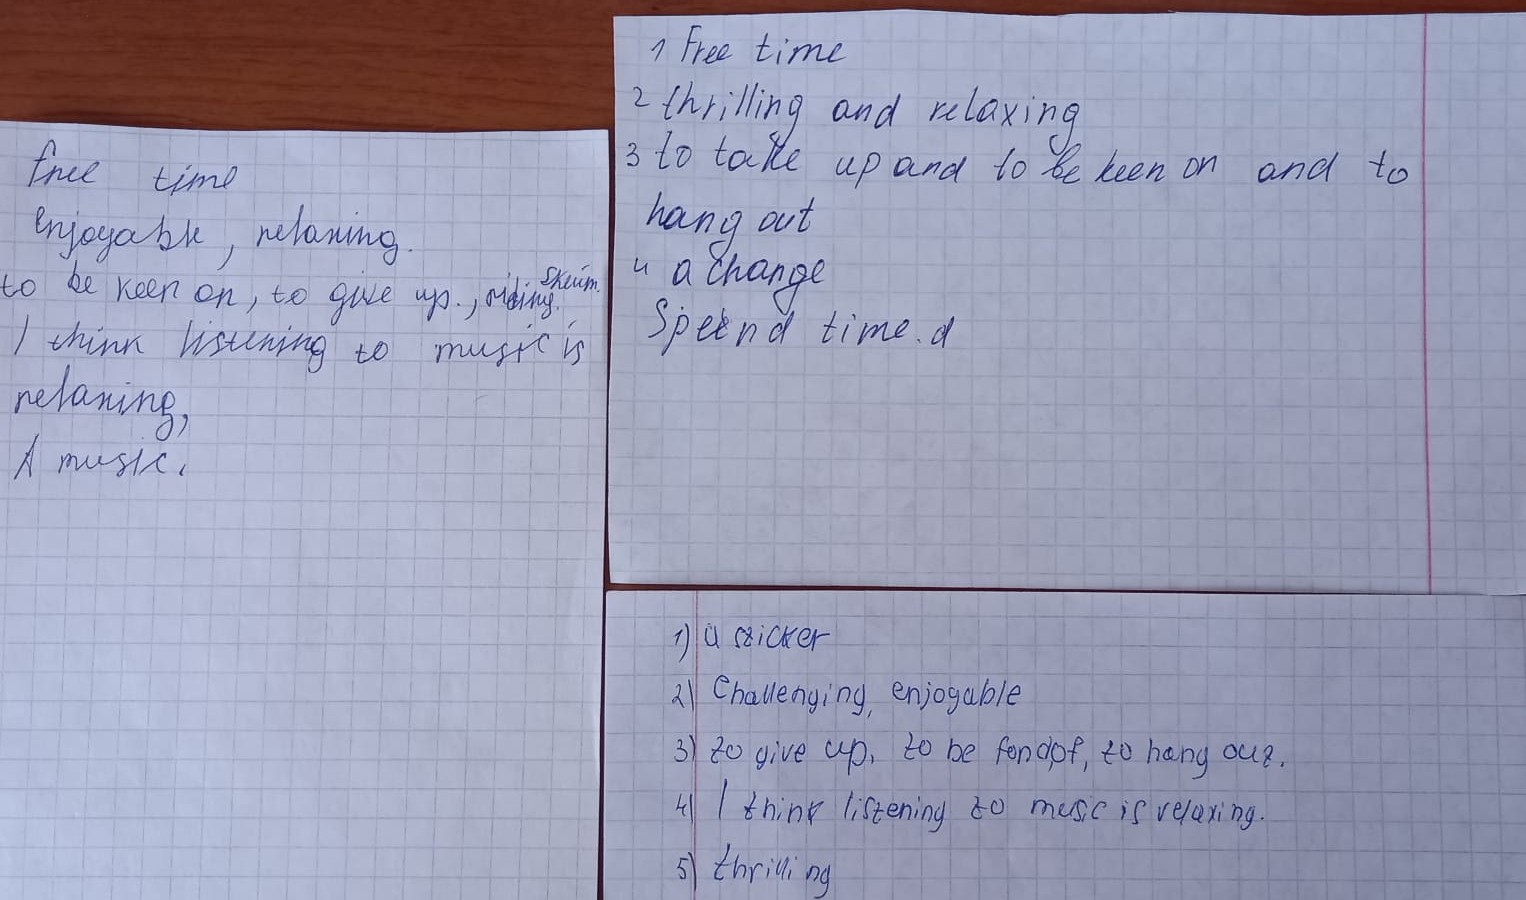 free time
enjoyable, relaxing.
to be keen on, to give up., riding.
I think listening to music is
relaxing,
A music.
1 Free time
2 thrilling and relaxing
3 to take up and to be keen on and to
hang out
4 a change
Speend time.d
1) a sticker
2) Challenging, enjoyable
3) to give up, to be fond of, to hang out.
4) I think listening to music is relaxing.
5) thrilling